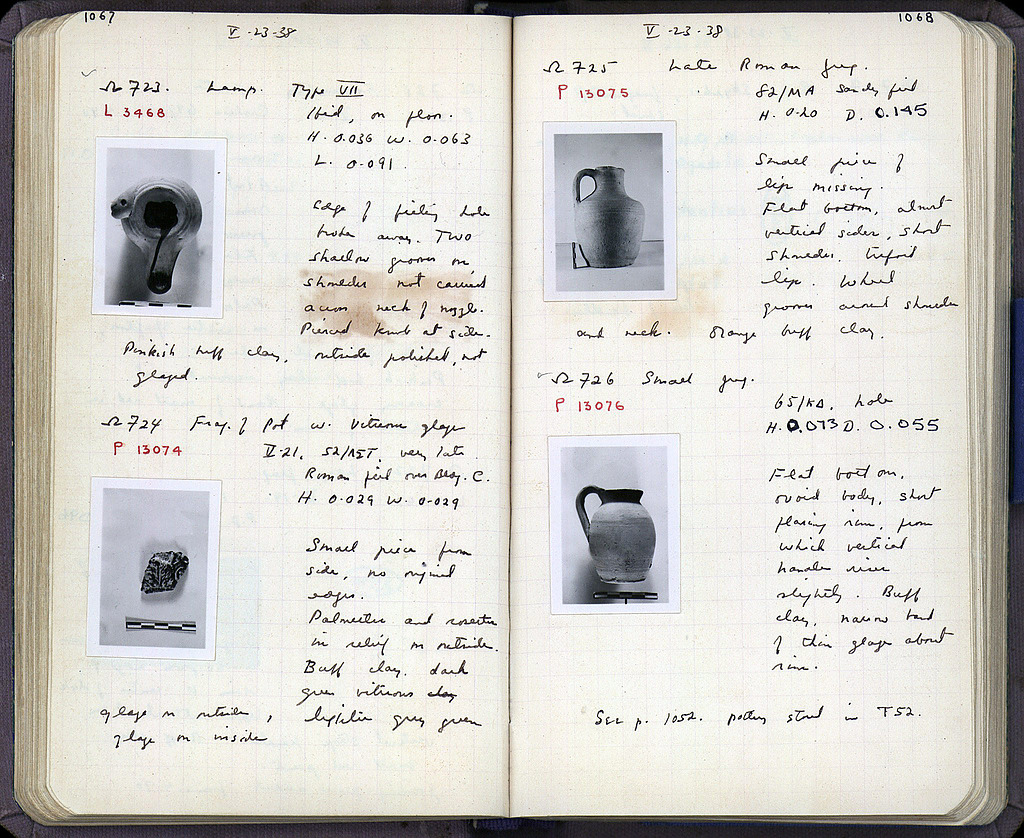 1067
V-23-38
Ω 723. Lamp. Type VII
L 3468
Ibid, on floor.
H. 0.036 W. 0.063
L. 0.091
Edge of filling hole
broken away. Two
shallow grooves on
shoulder not carried
across neck of nozzle.
Pierced knob at side.
Pinkish buff clay, outside polished, not
glazed.
Ω 724 Frag. of Pot w. Vitreous glaze
P 13074
V-21. 52/ very late
Roman fill over Bldg. C.
H. 0.029 W. 0.029
Small piece from
side, no original
edges.
Palmettes and rosettes
in relief on outside.
Buff clay. dark
green vitreous clay
glaze on outside, lighter grey green
glaze on inside
1068
V-23-38
Ω 725 Late Roman jug.
P 13075
82/MA Sandy fill
H. 0.20 D. 0.145
Small piece of
lip missing.
Flat bottom, almost
vertical sides, short
shoulder. trefoil
lip. Wheel
grooves around shoulder
and neck. Orange buff clay.
Ω 726 Small jug.
P 13076
65/KΔ. hole
H. 0.073 D. 0.055
Flat bottom,
ovoid body, short
flaring rim, from
which vertical
handle rises
slightly. Buff
clay, narrow band
of thin glaze about
rim.
See p. 1052. pottery stored in T52.